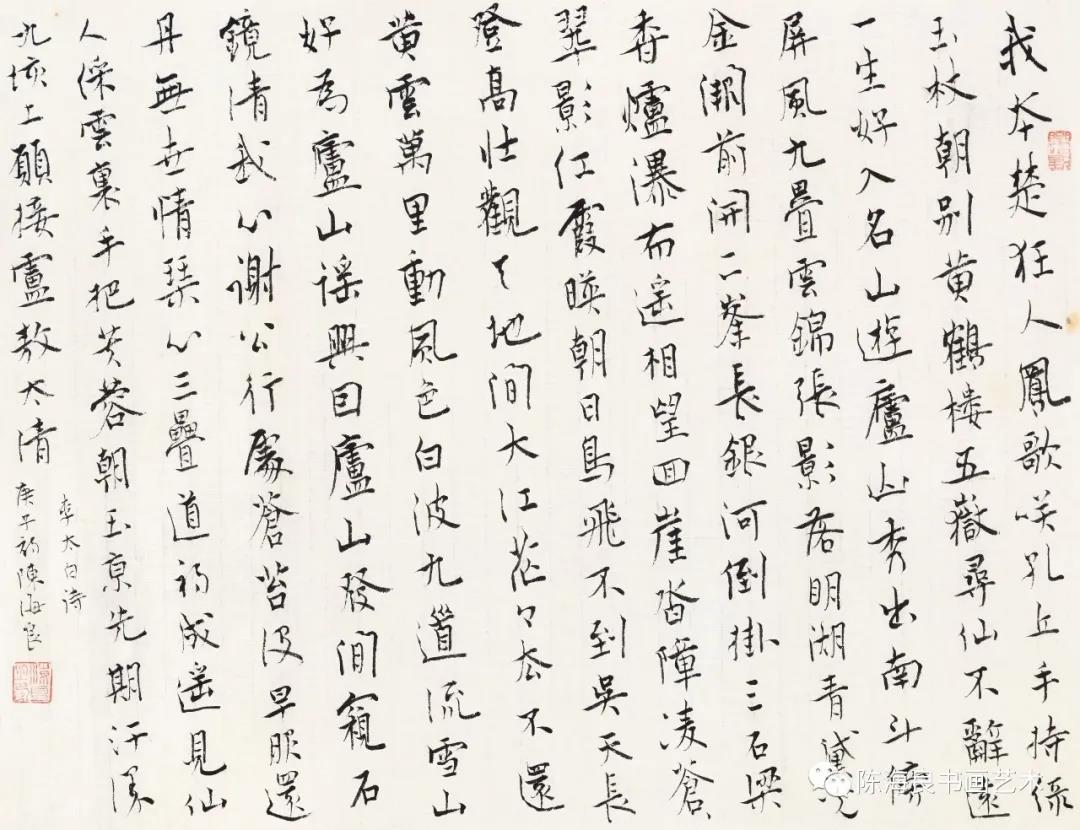 我本楚狂人鳳歌咲孔丘手持緑
玉杖朝别黄鶴樓五嶽尋仙不辭遠
一生好入名山遊廬山秀出南斗傍
屏風九疊雲錦張影落明湖青黛光
金闕前開二峯長銀河倒掛三石梁
香爐瀑布遥相望回崖沓障凌蒼
翠影红霞暎朝日鳥飛不到吳天長
登高壮觀天地间大江茫々去不還
黄雲萬里動風色白波九道流雪山
好為廬山谣興因廬山發闲窺石
鏡清我心謝公行處蒼苔没早服還
丹無世情琴心三疊道初成遥見仙
人綵雲裏手把芙蓉朝玉京先期汗漫
九垓上願接盧敖太清
李太白诗
庚子初陳海良
陈海良书画艺术